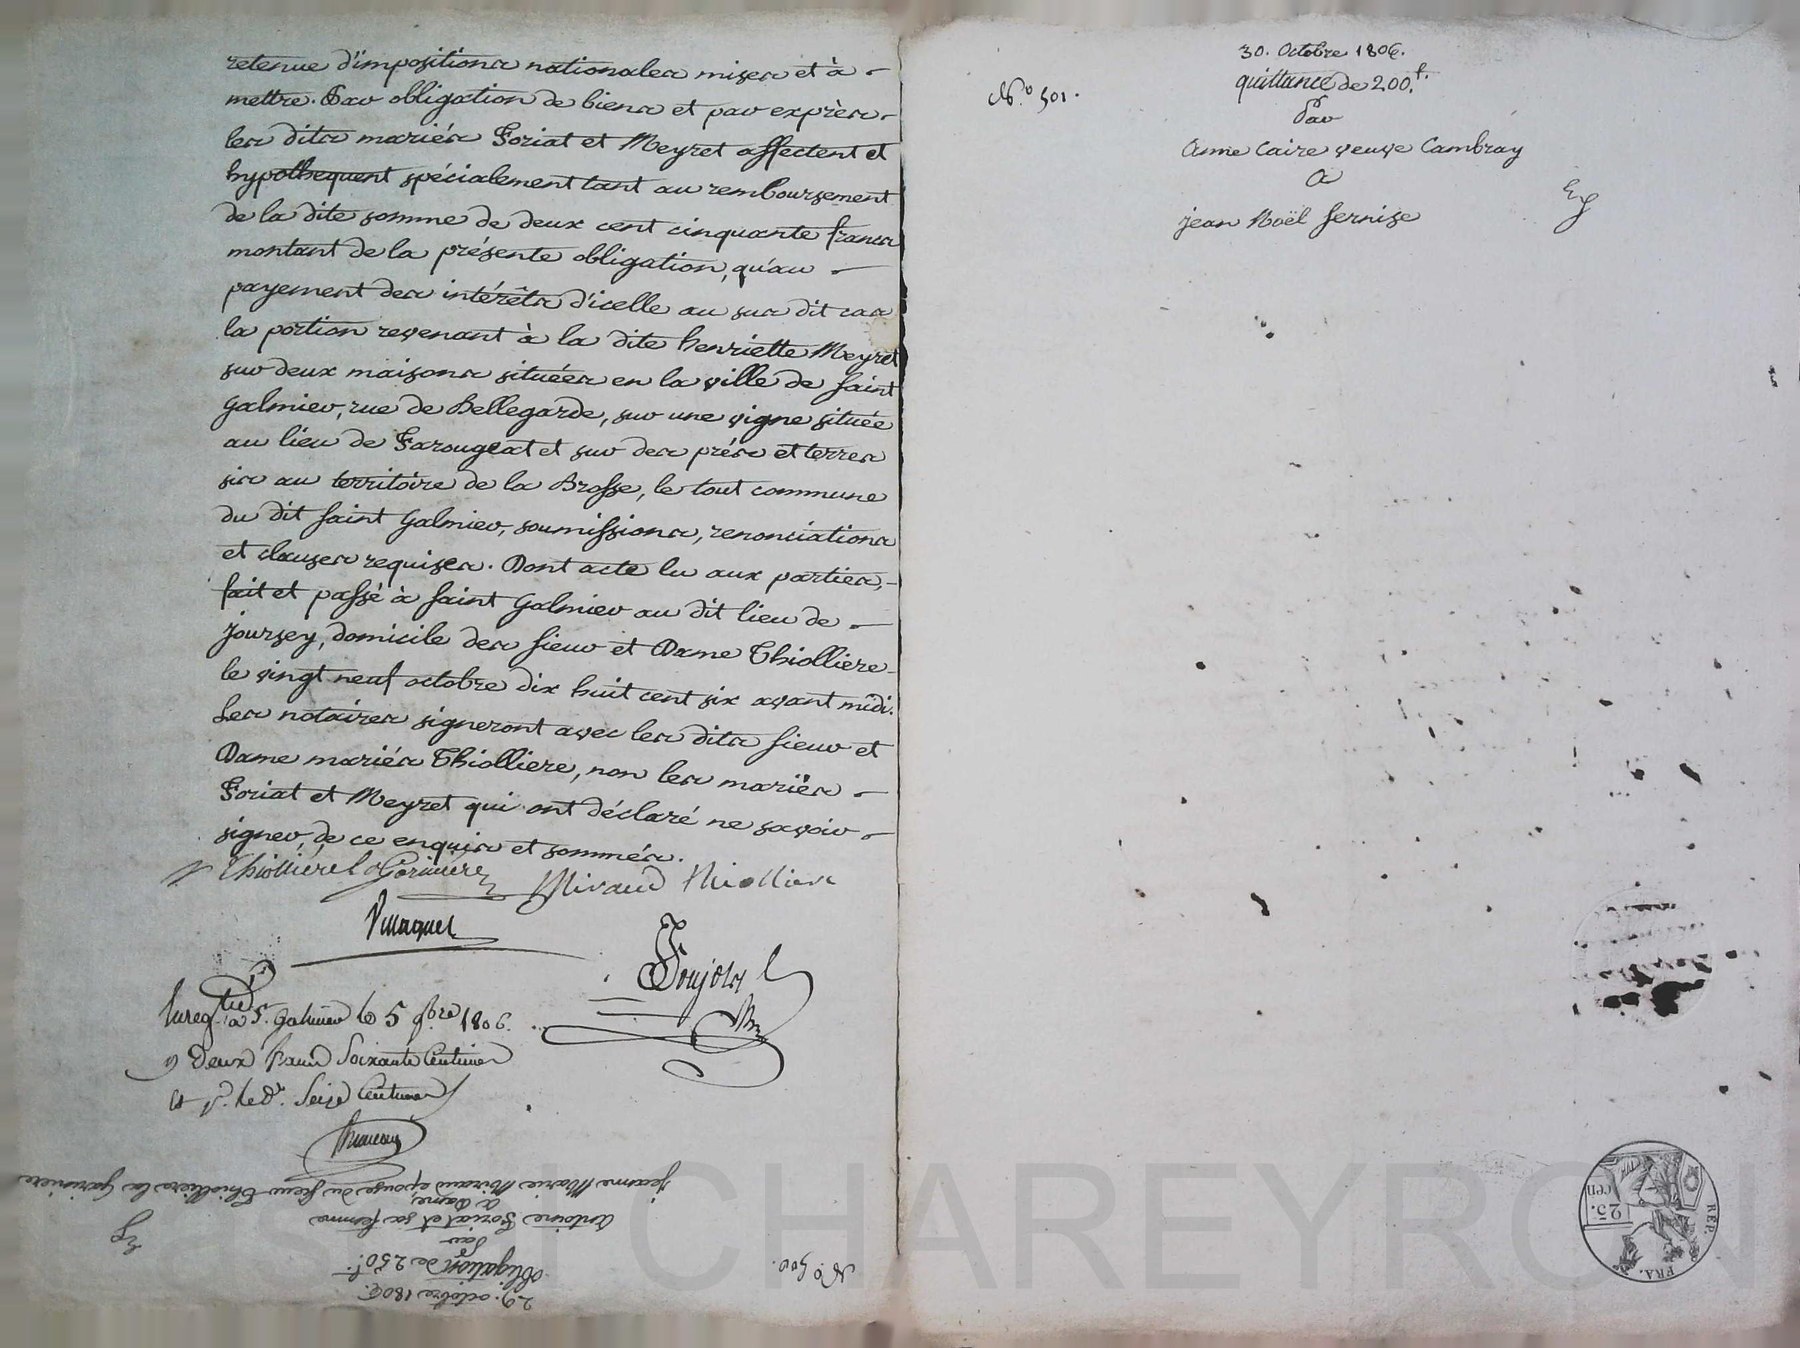 retenue d'impositions nationales mises et à
mettre. Par obligation de biens et par exprès
les dits mariés Foriat et Meyret affectent et
hypothequent spécialement tant au remboursement
de la dite somme de deux cent cinquante francs
montant de la présente obligation, qu'au
payement des intérêts d'icelle au sus dit cas
la portion revenant à la dite henriette Meyret
sur deux maisons situées en la ville de Saint
Galmier, rue de Bellegarde, sur une vigne située
au lieu de Farougeat et sur des prés et terres
sis au territoire de la Brosse, le tout commune
du dit Saint Galmier, soumissions, renonciations
et clauses requises. Dont acte lu aux parties,
fait et passé à Saint Galmier au dit lieu de
Joursey, domicile des Sieur et Dame Thiolliere
le vingt neuf octobre dix huit cent six avant midi.
Les notaires signeront avec les dits Sieur et
Dame mariés Thiolliere, non les mariés
Foriat et Meyret qui ont déclaré ne savoir
signer, de ce enquis et sommés.
Thiolliere Miraud Thiolliere
Poujols
Enreg. à St. Galmier le 5 9bre 1806.
deux francs Soixante Centimes
et Seize Centimes
29. octobre 1806.
Nº. 500.
obligation de 250f.
Par
Antoine Foriat et sa femme
à Dame,
Jeanne Marie Miraud épouse du Sieur Thiolliere la Garinière
Eg
30. Octobre 1806.
Nº. 501.
quittance de 200f.
Par
Anne Caire veuve Cambray
à
jean Noël Sernise
Eg
RÉP. FRA.
25.
cen
CHAREYRON